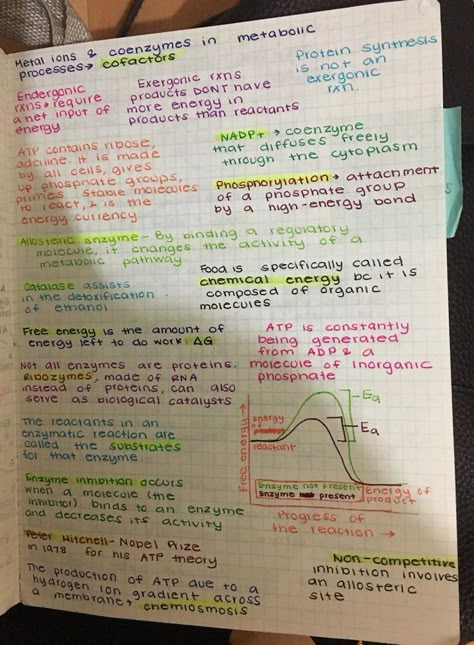 Metal ions & coenzymes in metabolic
processes → cofactors
Protein synthesis
is not an
exergonic
rxn.
Endergonic
rxns → require
a net input of
energy
Exergonic rxns
products DON'T have
more energy in
products than reactants
NADP+ → coenzyme
that diffuses freely
through the cytoplasm
ATP contains ribose,
adenine. It is made
by all cells, gives
up phosphate groups,
primes stable molecules
to react, & is the
energy currency.
Phosphorylation → attachment
of a phosphate group
by a high-energy bond
Allosteric enzyme - By binding a regulatory
molecule, it changes the activity of a
metabolic pathway.
Catalase assists
in the detoxification
of ethanol
Food is specifically called
chemical energy bc it is
composed of organic
molecules
Free energy is the amount of
energy left to do work ΔG
ATP is constantly
being generated
from ADP & a
molecule of inorganic
phosphate
Not all enzymes are proteins.
Ribozymes, made of RNA
instead of proteins, can also
serve as biological catalysts
The reactants in an
enzymatic reaction are
called the substrates
for that enzyme.
Free energy →
energy
of
reactant
Ea
Ea
Enzyme not present
Enzyme present
Energy of
product
Progress of
the reaction →
Enzyme inhibition occurs
when a molecule (the
inhibitor) binds to an enzyme
and decreases its activity
Peter Mitchell - Nobel Prize
in 1978 for his ATP theory
The production of ATP due to a
hydrogen ion gradient across
a membrane → chemiosmosis
Non-competitive
inhibition involves
an allosteric
site